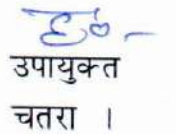 उपायुक्त
चतरा ।